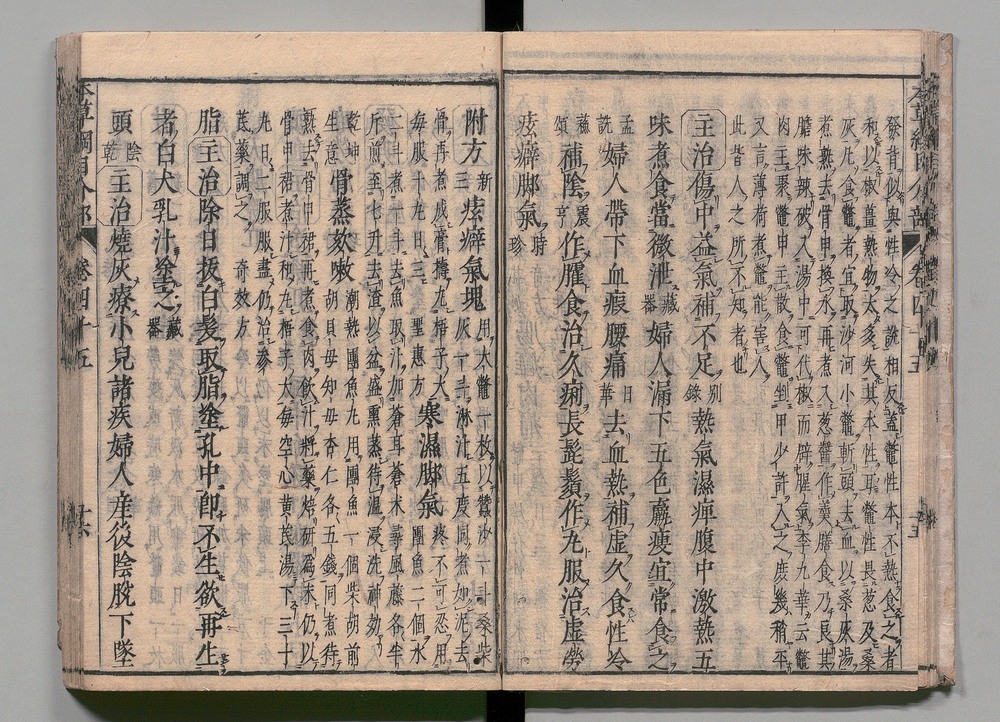 發昔似與性冷之說相反蓋鼈性本不熱食之者
和以椒薑熱物太多失其本性耳鼈性畏葱及桑
灰凡食鼈者宜取沙河小鼈斬頭去血以桑灰湯
煮熟去骨甲換水再煮入葱醬作羹膳食乃良其
膽味辣破入湯中可代椒而辟腥氣李九華云鼈
肉主聚鼈甲主散食鼈剉甲少許入之庶幾稍平
又言薄荷煮鼈能害人
此皆人之所不知者也
主治傷中益氣補不足別錄熱氣濕痺腹中激熱五
味煮食當微泄藏器婦人漏下五色羸瘦宜常食之
孟詵婦人帶下血瘕腰痛日華去血熱補虛久食性冷
蘇頌補陰震亨作臛食治久痢長髭鬚作丸服治虛勞
痃癖脚氣時珍
附方新三痃癖氣塊用大鼈一枚以蠶沙一斗桑柴
灰一斗淋汁五度同煮如泥去
骨再煮成膏擣丸梧子大
每服十丸日三聖惠方寒濕脚氣疼不可忍用
團魚二個水
二斗煮一斗去魚取汁加蒼耳蒼朮尋風藤各半
斤煎至七升去渣以盆盛熏蒸待溫浸洗神効
乾坤生意骨蒸欬嗽潮熱團魚丸用團魚一個柴胡前
胡貝母知母杏仁各五錢同煮待
熟去骨甲裙再煮食肉飲汁將藥焙研爲末仍以
骨甲裙煮汁和丸梧子大每空心黃芪湯下三十
丸日二服服盡仍治參
芪藥調之奇效方
脂主治除日拔白髮取脂塗孔中卽不生欲再生
者白犬乳汁塗之藏器
頭陰乾主治燒灰療小兒諸疾婦人産後陰脫下墜
本草綱目介部 卷四十五 十六